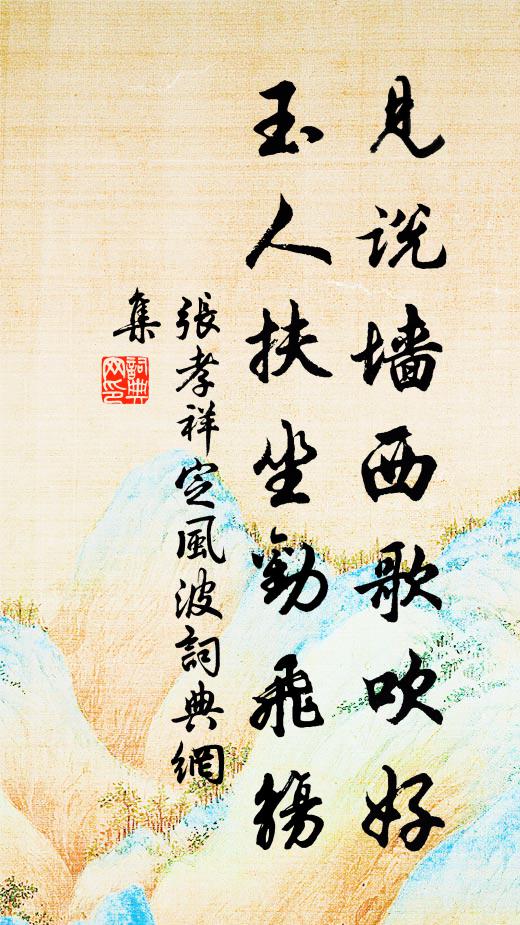 见说墙西歌吹好
玉人扶坐劝飞觞
張孝祥定風波詞典網
集
詞典
网印